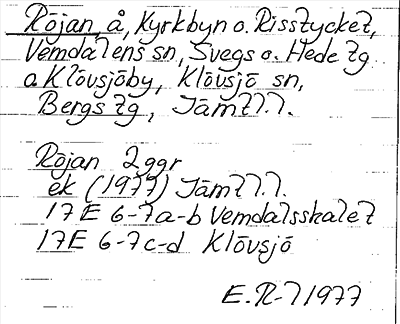 Röjan, å, Kyrkbyn o. Risstycket,
Vemdalens sn, Svegs o. Hede tg
a Klövsjöby, Klövsjö sn,
Bergs tg, Jämtl.l.
Röjan 2ggr
ek (1977) Jämtl.l.
17E 6-7a-b Vemdalsskalet
17E 6-7c-d Klövsjö
E.R-l 1977